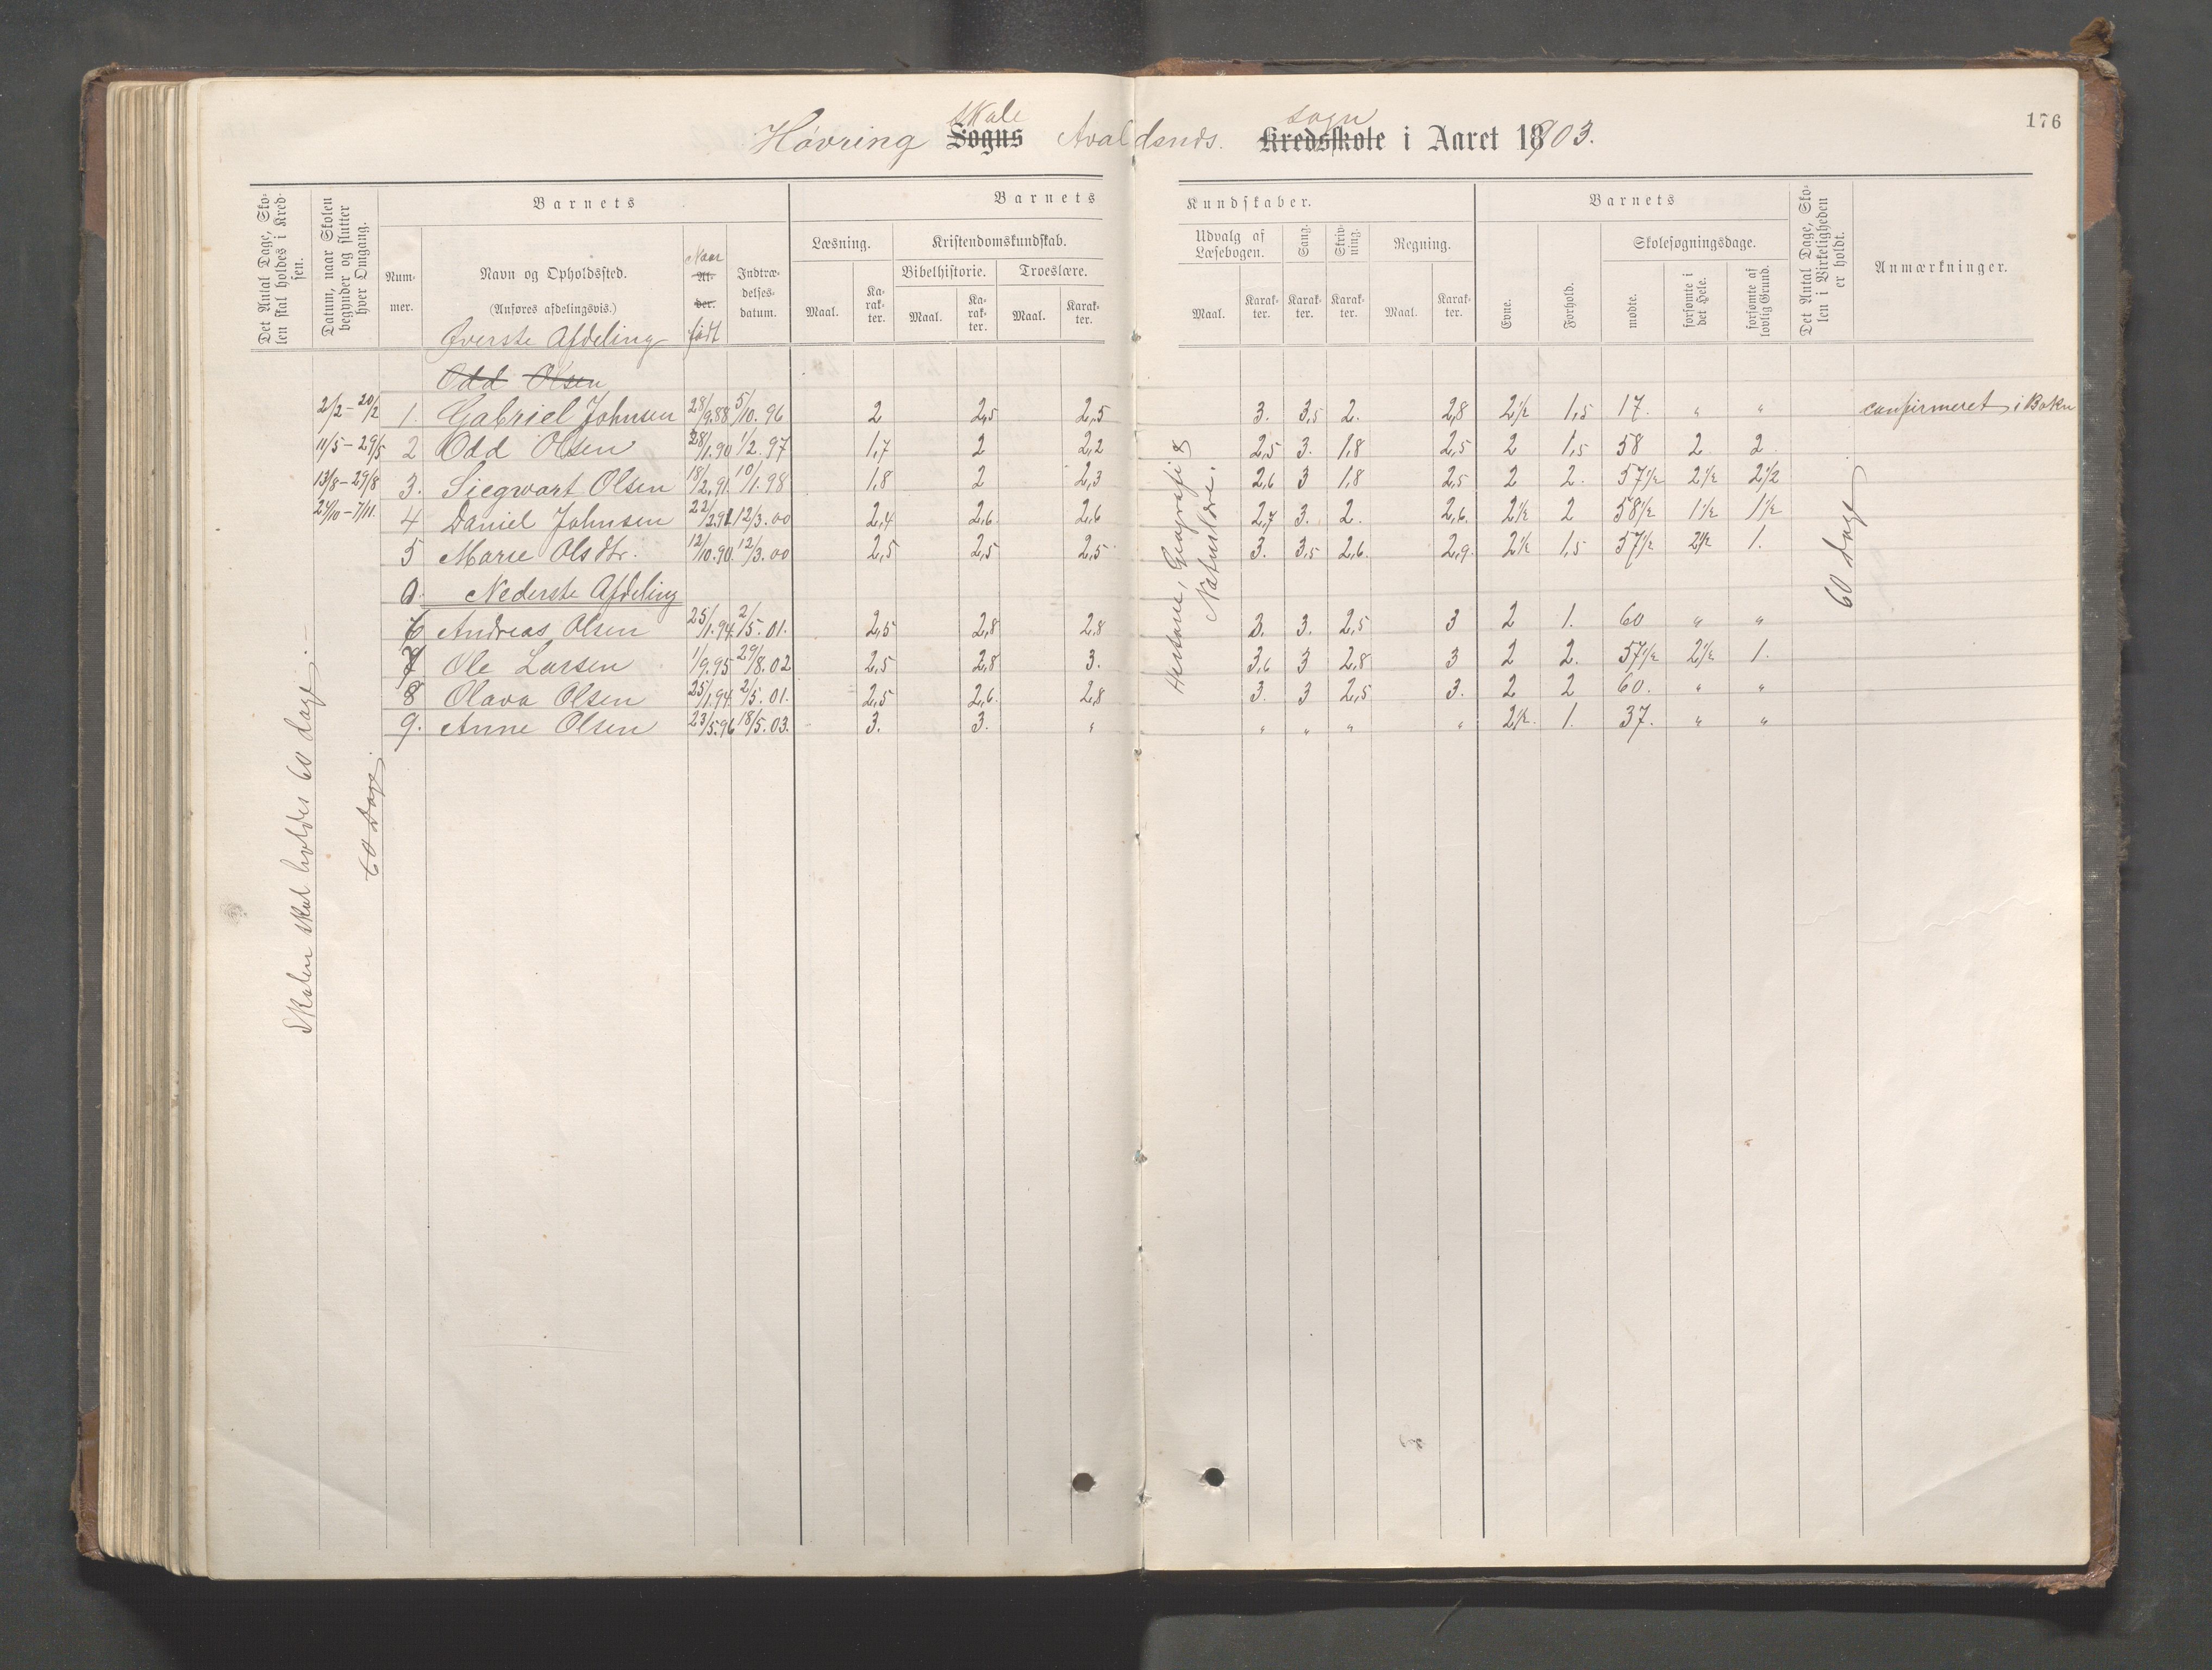 176
Høvring Sogns skole Avaldsnds. Kredsskole sogn i Aaret 18903.
Det Antal Dage, Skolen skal holdes i Kredsen.
Datum, naar Skolen begynder og slutter hver Omgang.
Barnets
Barnets
Kundskaber.
Barnets
Det Antal Dage, Skolen i Virkeligheden er holdt.
Anmærkninger.
Nummer.
Navn og Opholdssted.
(Anføres afdelingsvis.)
Naar Alder. født
Indtrædelsesdatum.
Læsning.
Kristendomskundskab.
Bibelhistorie.
Troeslære.
Udvalg af Læsebogen.
Sang.
Skrivning.
Regning.
Evne.
Forhold.
Skolesøgningsdage.
Maal. Karakter. Maal. Karakter. Maal. Karakter. Maal. Karakter. Karakter. Karakter. Maal. Karakter. mødte. forsømte i det Hele. forsømte af lovlig Grund.
Øverste Afdeling
Odd Olsen
2/2 – 20/2 1. Gabriel Johnsen 28/9.88 5/10.96 2 2,5 2,5 3. 3,5 2. 2,8 2½ 1,5 17. " " confirmeret i Bokn
11/5 – 29/5 2 Odd Olsen 28/1.90 1/2.97 1,7 2 2,2 2,5 3. 1,8 2,5 2 1,5 58 2 2
13/8 – 29/8 3. Siegwart Olsen 18/2.91 10/1.98 1,8 2 2,3 2,6 3 1,8 2,5 2 2. 57½ 2½ 2½
24/10 – 7/11. 4 Daniel Johnsen 22/2.91 12/3.00 2,4 2,6 2,6 2,7 3. 2. 2,6. 2½ 2 58½ 1½ 1½
5 Marie Olsdtr. 12/10.90. 12/3.00 2,5 2,5 2,5 3. 3,5 2,6. 2,9. 2½ 1,5 57½ 2½ 1.
Nederste Afdeling
6 Andreas Olsen 25/1.94. 2/5.01. 2,5 2,8 2,8 3. 3. 2,5 3 2 1. 60 " "
7 Ole Larsen 1/9.95 29/8.02 2,5 2,8 3. 3,6 3 2,8 3 2 2. 57½ 2½ 1.
8 Olava Olsen 25/1.94. 2/5.01. 2,5 2,6. 2,8 3. 3 2,5 3. 2 2 60. " "
9. Anne Olsen 23/5.96 18/5.03. 3. 3. " " " " " 2½. 1. 37. " "
Skolen skal holdes 60 dage.
60 Dage.
Historie, Geografi &
Naturlære.
60 dage